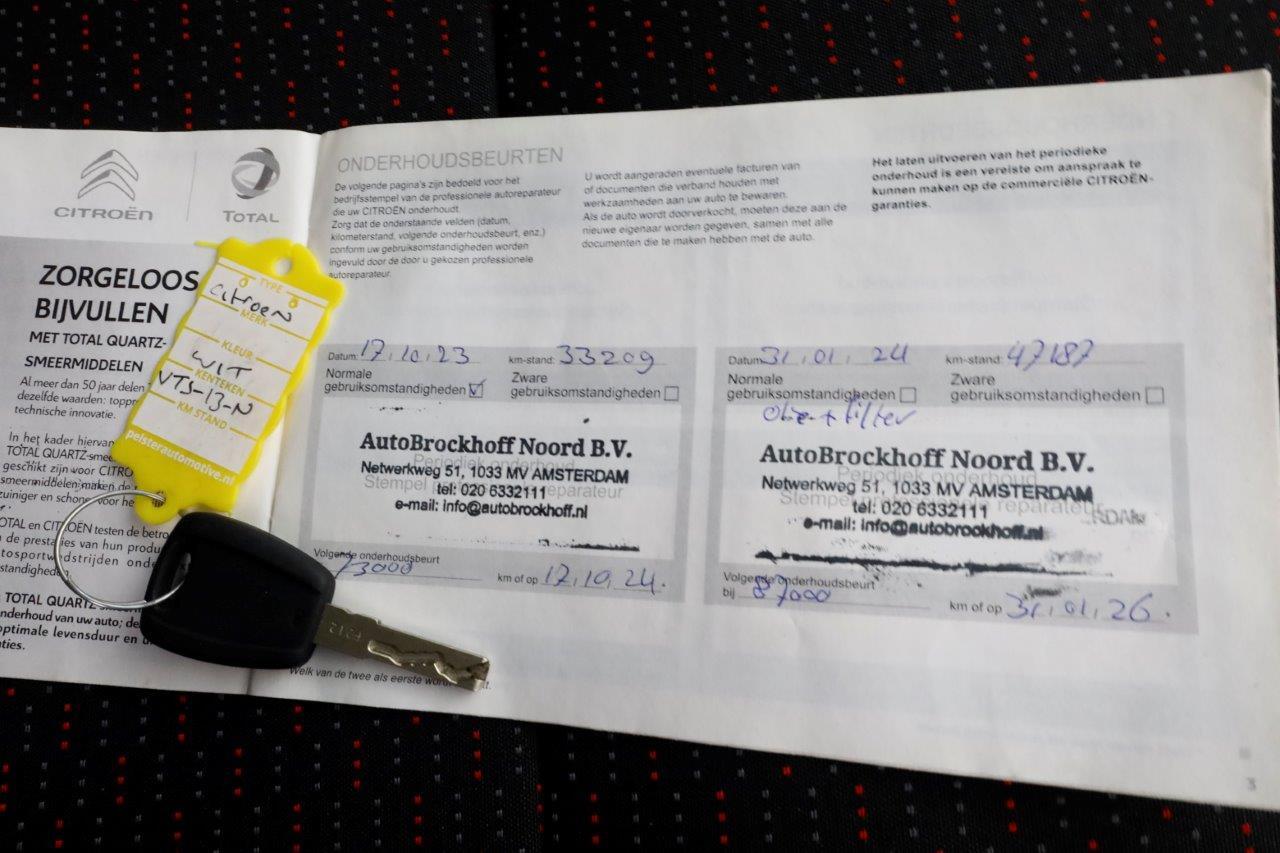 CITROËN
TOTAL
ZORGELOOS
BIJVULLEN
MET TOTAL QUARTZ-
SMEERMIDDELEN
Al meer dan 50 jaar delen
dezelfde waarden:
technische innovatie.
In het kader hiervan
TOTAL QUARTZ-
geschikt zijn voor CITRO
smeermiddelen maken de
zuiniger en schoner voor he
OTAL en CITROËN testen de
de prestaties van hun produ
tosportwedstrijden onde
standigheden
TOTAL QUARTZ
onderhoud van uw auto; de
optimale levensduur en
ties.
TYPE
Citroen
MERK
KLEUR
WIT
KENTEKEN
VTS-13-N
KM STAND
pelsterautomotive.nl
F212
ONDERHOUDSBEURTEN
De volgende pagina's zijn bedoeld voor het
bedrijfsstempel van de professionele autoreparateur
die uw CITROËN onderhoudt.
Zorg dat de onderstaande velden (datum,
kilometerstand, volgende onderhoudsbeurt, enz.)
conform uw gebruiksomstandigheden worden
ingevuld door de door u gekozen professionele
autoreparateur.
U wordt aangeraden eventuele facturen van
of documenten die verband houden met
werkzaamheden aan uw auto te bewaren.
Als de auto wordt doorverkocht, moeten deze aan de
nieuwe eigenaar worden gegeven, samen met alle
documenten die te maken hebben met de auto.
Het laten uitvoeren van het periodieke
onderhoud is een vereiste om aanspraak te
kunnen maken op de commerciële CITROËN-
garanties.
Datum: 17.10.23 km-stand: 33209
Normale
gebruiksomstandigheden
Zware
gebruiksomstandigheden
Periodiek onderhoud
Stempel reparateur
AutoBrockhoff Noord B.V.
Netwerkweg 51, 1033 MV AMSTERDAM
tel: 020 6332111
e-mail: info@autobrockhoff.nl
Volgende onderhoudsbeurt
73000 km of op 17.10.24.
Datum: 31.01.24 km-stand: 47187
Normale
gebruiksomstandigheden
Zware
gebruiksomstandigheden
Olie + filter
Periodiek onderhoud
Stempel reparateur
AutoBrockhoff Noord B.V.
Netwerkweg 51, 1033 MV AMSTERDAM
tel: 020 6332111
e-mail: info@autobrockhoff.nl
RDAM
Volgende onderhoudsbeurt
bij 87000 km of op 31.01.26.
Welk van de twee als eerste
3